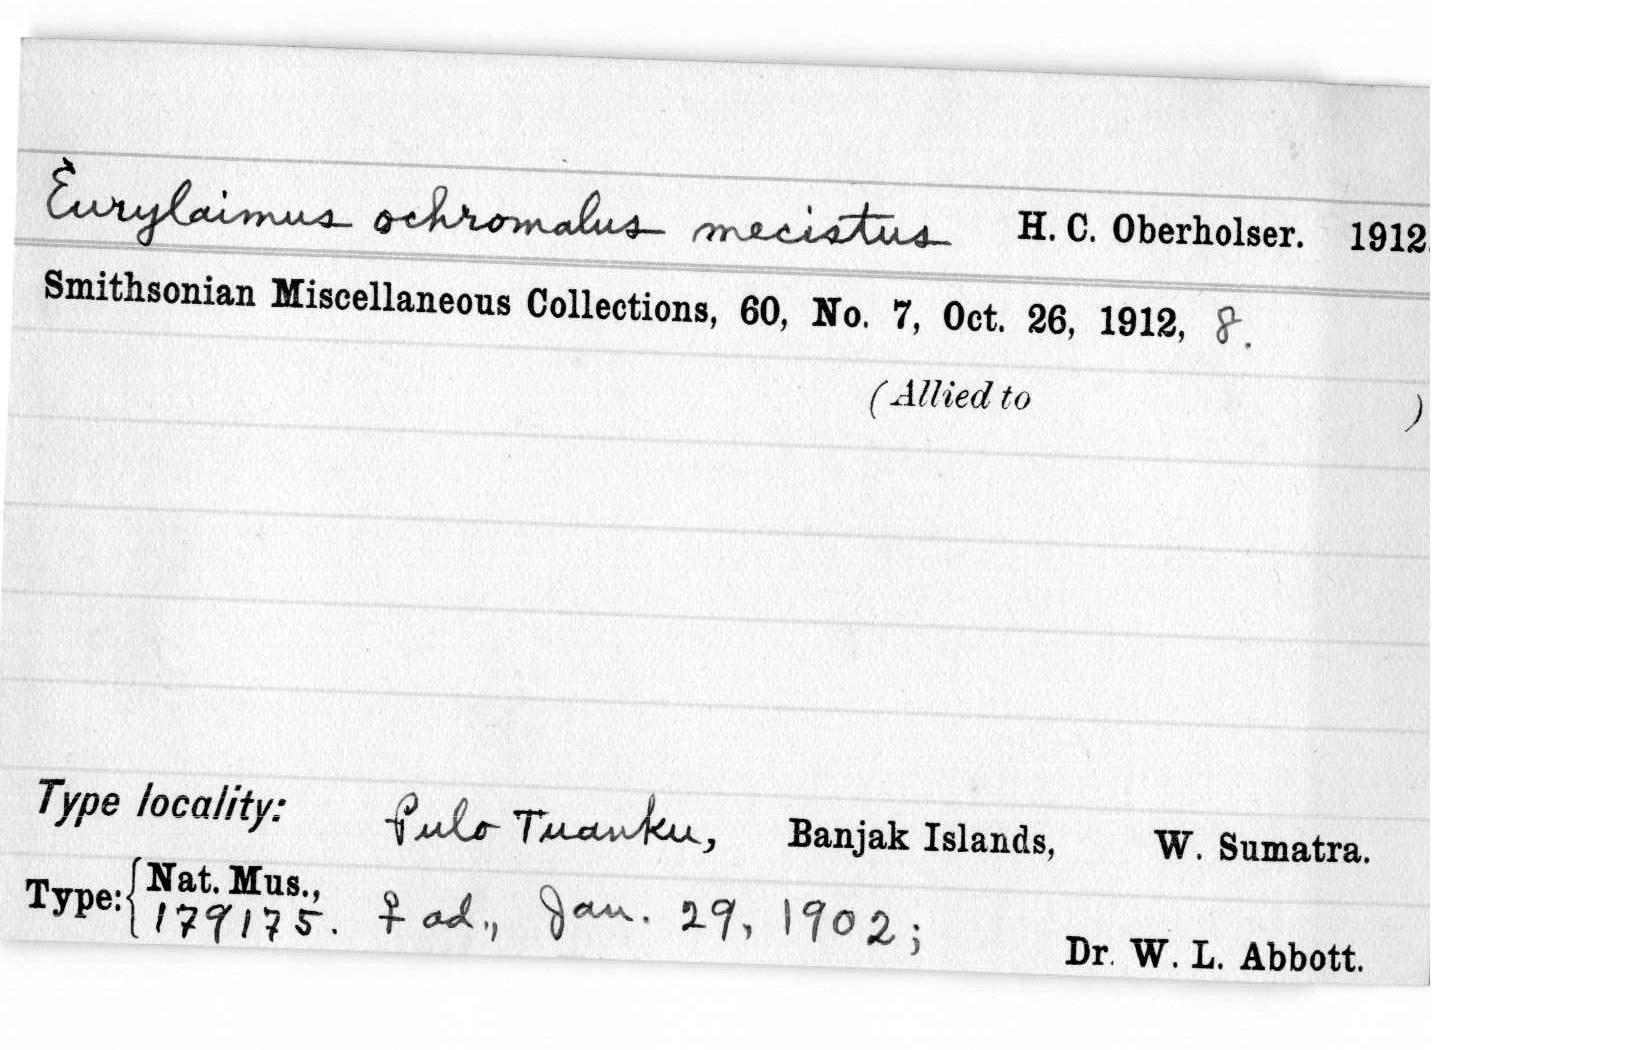 Eurylaimus ochromalus mecistus H. C. Oberholser. 1912.
Smithsonian Miscellaneous Collections, 60, No. 7, Oct. 26, 1912, 8.
(Allied to )
Type locality: Pulo Tuanku, Banjak Islands, W. Sumatra.
Type: { Nat. Mus.,
179175. ♀ ad., Jan. 29, 1902; Dr. W. L. Abbott.